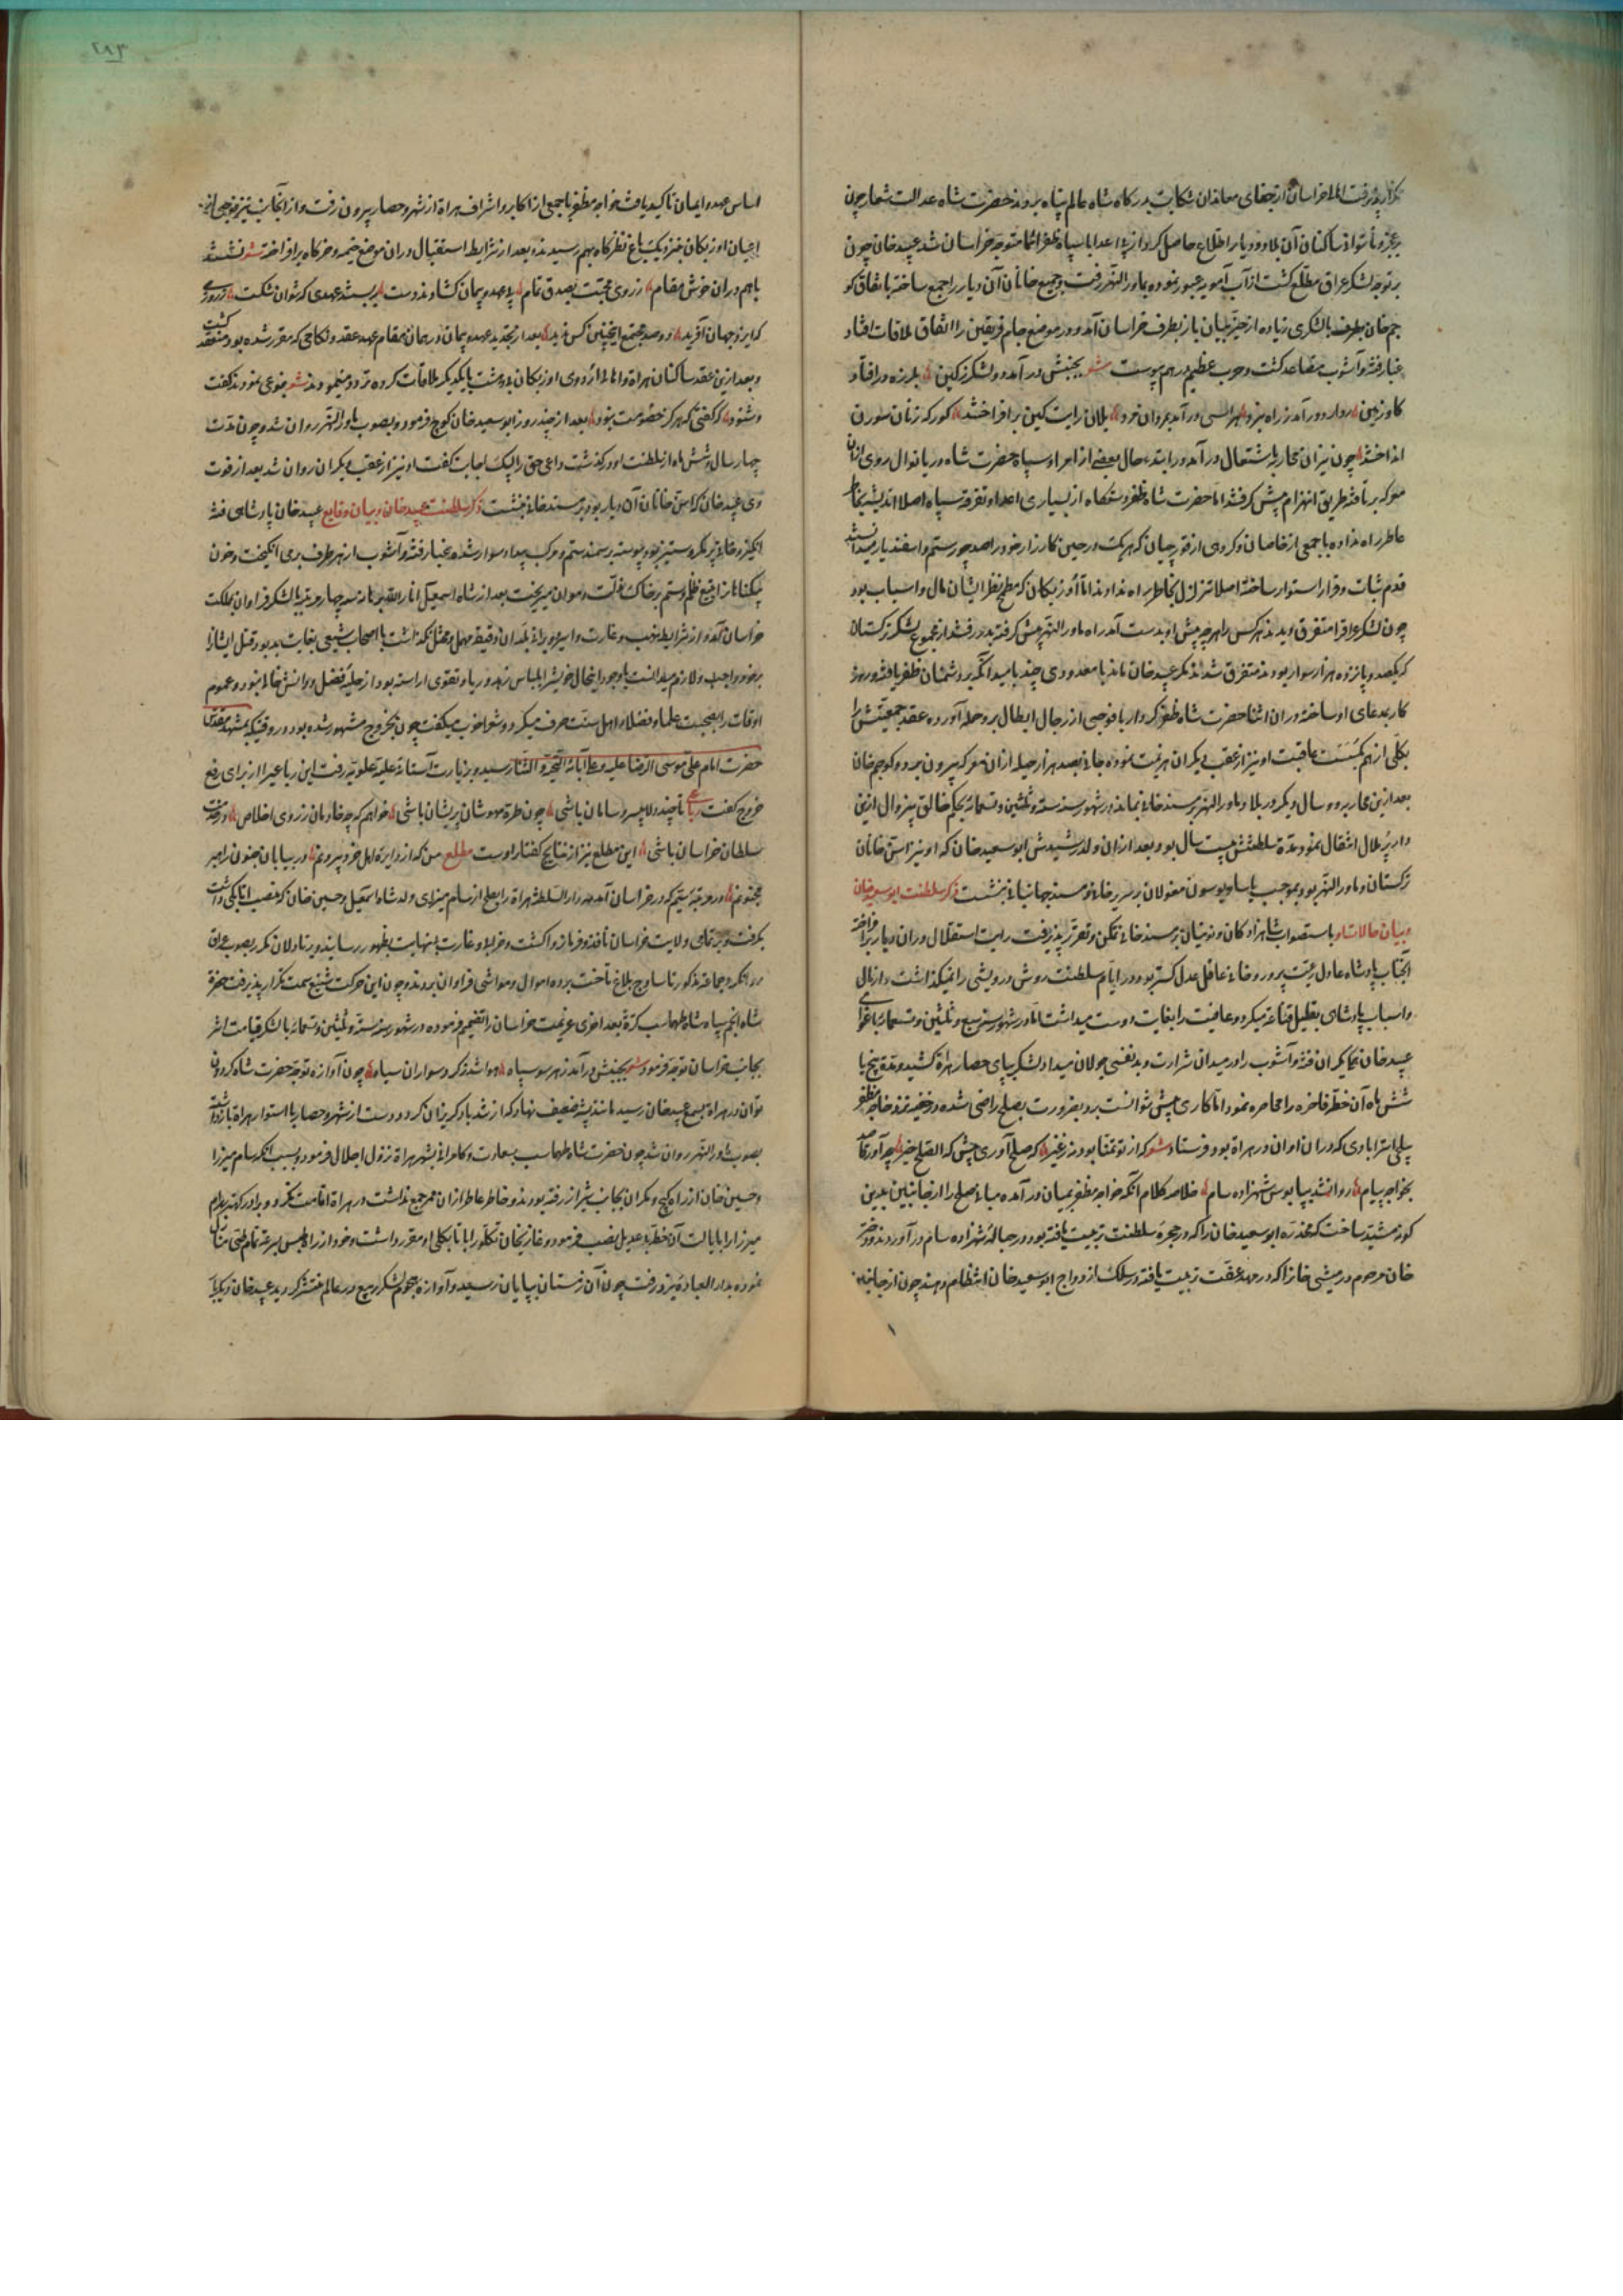 بتکرار پذیرفت اهالی خراسان از جفای معاندان شکایت بدرکاه شاه عالم پناه بردند حضرت شاه عدالت شعار چون
بر عجز و ناتوانی ساکنان آن بلاد و دیار اطلاع حاصل کرد از پی اعدا با سپاه ظفر انتما متوجه خراسان شد عبید خان چون
بر توجه لشکر عراق مطلع کشت از آب آمویه عبور نموده بماورالنهر رفت و جمیع خانان آن دیار را جمع ساخته باتفاق کو
جم خان بطرف با لشکری زیاده از حیز بیان باز بطرف خراسان آمد و در موضع جام فریقین را اتفاق ملاقات افتاد
غبار فتنه و آشوب متصاعد کشت و حرب عظیم در هم پیوست شعر بجنبش در آمد دو لشکر ز کین بلرزه در افتاد
کاو زمین در آمد ز راه نبرد هراسی در آمد بمردان مرد یلان رایت کین بر افراختند کورکه زنان سورن
انداختند چون نیران محاربه باشتعال در آمد در ابتدا حال بعضی از امرا و سپاه حضرت شاه دریا نوال روی از ان
معرکه بر تافته طریق انهزام پیش کرفتند اما حضرت شاه ظفر دستکاه از بسیاری اعدا و تفرقه سپاه اصلا اندیشه بخاطر
عاطر راه نداده با جمعی از خاصان و کروهی از قورجیان که هر یک در حین کارزار خود را صد چو رستم و اسفندیار میدانستند
قدم ثبات و قرار استوار ساخته اصلا تزلزل بخاطر راه ندادند اما اوزبکان که مطمح نظر ایشان مال و اسباب بود
چون لشکر عراق را متفرق دیدند هر کس را هر چه پیش او بدست آمد راه ماورالنهر پیش کرفته بدر رفتند از مجموع لشکر ترکستان
که یکصد و پانزده هزار سوار بودند متفرق شدند مکر عبید خان ماند با معدودی چند بامید آنکه بر دشمنان ظفر یافته و روز
کار بمدعای او ساخته در ان اثنا حضرت شاه ظفر کردار با فوجی از رجال ابطال بر وی حمله آورده عقد جمعیتش را
بکلی از هم کسست عاقبت او نیز از عقب دیکران هزیمت نموده جانی بصد هزار حیله از ان معرکه بیرون برد و کوجم خان
بعد ازین محاربه دو سال دیکر در بلاد ماورالنهر بر مسند خانی بماند در شهور سنه ستة و ثلثین و تسعمائه بحکم خالق بی زوال ازین
دار پر ملال انتقال نمود مدة سلطنتش بیست سال بود و بعد از ان ولد رشیدش ابو سعید خان که او نیز اسن خانان
ترکستان و ماورالنهر بود بموجب یاسا و یوسون مغولان بر سریر خانی و مسند جهانبانی بنشست ذکر سلطنت ابو سعید خان
و بیان حالات او باستصواب شاهزادکان و نوئینان بر مسند خانی تمکن و تعزز پذیرفت رایت استقلال در ان دیار بر افراخته
آنجناب پادشاه عادل رعیت پرور و خانی عاقل عدل کستر بود در ایام سلطنت روش درویشی را نمیکذاشت و از مال
و اسباب پادشاهی بقلیل قناعت میکرد و عافیت را بغایت دوست میداشت اما در شهور سنه سبع و ثلثین و تسعمائه باغوای
عبید خان یکران فتنه و آشوب را در میدان شرارت و بد نفسی جولان میداد لشکر بپای حصار هراة کشید و مدة پنج یا
شش ماه آن خطه فاخره را محاصره نمود اما کاری پیش نتوانست برد بضرورت بصلح راضی شده در خفیه نزد خواجه مظفر
بیتکچی استرابادی که در ان اوان در هراة بود فرستاد شعر که از تو تمنا بود نه ز غیر که صلح آوری پیش که الصلح خیر چو آورد قاصد
بخواجه پیام روان شد بپابوس شهزاده سام خلاصه کلام آنکه خواجه مظفر بمیان در آمده مبانی صلح را از جانبین بدین
کونه مشید ساخت که مخدره ابو سعید خان را که در حجره سلطنت تربیت یافته بود در حباله شهزاده سام در آوردند و دختر
خان مرحوم درمش خان را که در مهد عفت تربیت یافته در سلک ازدواج ابو سعید خان انتظام دهند چون از جانبین
اساس عهد و ایمان تاکید یافت خواجه مظفر با جمعی از اکابر و اشراف هراة از شهر و حصار بیرون رفت و از آنجانب نیز فوجی از
اعیان اوزبکان بنزدیک باغ نظرکاه بهم رسیدند بعد از شرایط استقبال در ان موضع خیمه و خرکاه بر افراختند شعر نشستند
باهم در ان خوش مقام ز روی محبت بصدق تمام پی عهد و پیمان کشادند دست ببستند عهدی که نتوان شکست ز روزی
که ایزد جهان آفرید دو صد مجتمع اینچنین کس ندید بعد از تجدید عهد و پیمان در همان مقام عهد عقد و نکاحی که مقرر شده بود منعقد کشت
و بعد ازین عقد ساکنان هراة و اهالی اردوی اوزبکان بی دهشت با یکدیکر ملاقات کرده تردد مینمودند شعر بنوعی نمودند کفت
و شنود که کفتی که هرکز خصومت نبود بعد از چند روز ابو سعید خان کوچ فرمود و بصوب ماورالنهر روان شد و چون مدت
چهار سال و شش ماه از سلطنت او در کذشت داعی حق را لبیک اجابت کفت او نیز از عقب دیکران روان شد بعد از فوت
وی عبید خان که اسن خانان آن دیار بود بر مسند خانی بنشست ذکر سلطنت عبید خان و بیان وقایع عبید خان پادشاهی فتنه
انکیز و خانی پر مکر و ستیز بود پیوسته بر سمند ستم و مرکب بیداد سوار شده غبار فتنه و آشوب از هر طرف بر می انکیخت و خون
بیکناهان از تیغ ظلم و ستم بر خاک مذلت و هوان میریخت بعد از شاه اسمعیل انار الله برهانه سه چهار مرتبه با لشکر فراوان بمملکت
خراسان آمد و از شرایط نهب و غارت و اسیر دقیقه مهمل و مختل نکذاشت با اصحاب شیعی بغایت بد بود و قتل ایشانرا
بر خود واجب و لازم میدانست با وجود اینحال خویش را بلباس زهد و ریا و تقوی آراسته بود از حلیه فضل و دانش خالی نبود و عموم
اوقات را بصحبت علما و فضلاء اهل سنت صرف میکرد و شعر را خوب میکفت چون بخروج مشهور شده بود در وقتیکه بمشهد مقدس
حضرت امام علی موسی الرضا علیه و علی آبائه التحیة و الثنا رسید و بزیارت آستانه علیه علویه رفت این رباعی را از برای رفع
خروج کفت رباعی تا چند دلا بی سر و سامان باشی چون طره مهوشان پریشان باشی خواهم که چو خادمان ز روی اخلاص در خدمت
سلطان خراسان باشی این مطلع نیز از نتایج کفتار اوست مطلع من که از دایره اهل خرد بیرونم در بیابان جنون راهبر
مجنونم در مرتبه سیم که در خراسان آمد دارالسلطنه هراة را بصلح از سام میرزای ولد شاه اسمعیل و حسین خان که منصب اتابکی داشت
بکرفت و بر تمامی ولایت خراسان تافته و فرمانروا کشت و خرابی و غارت بی نهایت بظهور رسانید و دلاوران مکرر بصوب عراق
روانکرد و جماعه مذکور تا ساوج بلاغ تاخت برده اموال و مواشی فراوان بردند و چون این حرکت شنیع سمت تکرار پذیرفت حضرة
شاه انجم سپاه شاه طهماسب کرة بعد اخری عزیمت خراسان را تصمیم فرموده در شهور سنه ستة و ثلثین و تسعمائه با لشکر قیامت اثر
بجانب خراسان توجه فرمود شعر بجنبش در آمد ز هر سو سپاه هوا شد ز کرد سواران سیاه چون آوازه توجه حضرت شاه کردون
توان در هراة بسمع عبید خان رسید مانند پشه ضعیف نهاد که از تند باد کریزان کردد دست از شهر و حصار با استوار هراة باز داشته
بصوب ماورالنهر روان شد چون حضرت شاه طهماسب بسعادت و کامرانی بشهر هراة نزول اجلال فرمود و بسبب آنکه سام میرزا
و حسین خان از راه کیج و مکران بجانب شیراز رفته بودند و خاطر عاطر از ان ممر جمع نداشت در هراة اقامت نکرد و برادر کهتر بهرام
میرزا را بایالت آن خطه بی عدیل نصب فرمود و غازیخان تکلو را باتابکی او مقرر داشت و خود از راه طبس بسرعة تمام طی منازل
نموده بدار العباده یزد رفت چون آن زمستان بپایان رسید و آوازه هجوم لشکر ربیع در عالم منتشر کردید عبید خان دیکربار